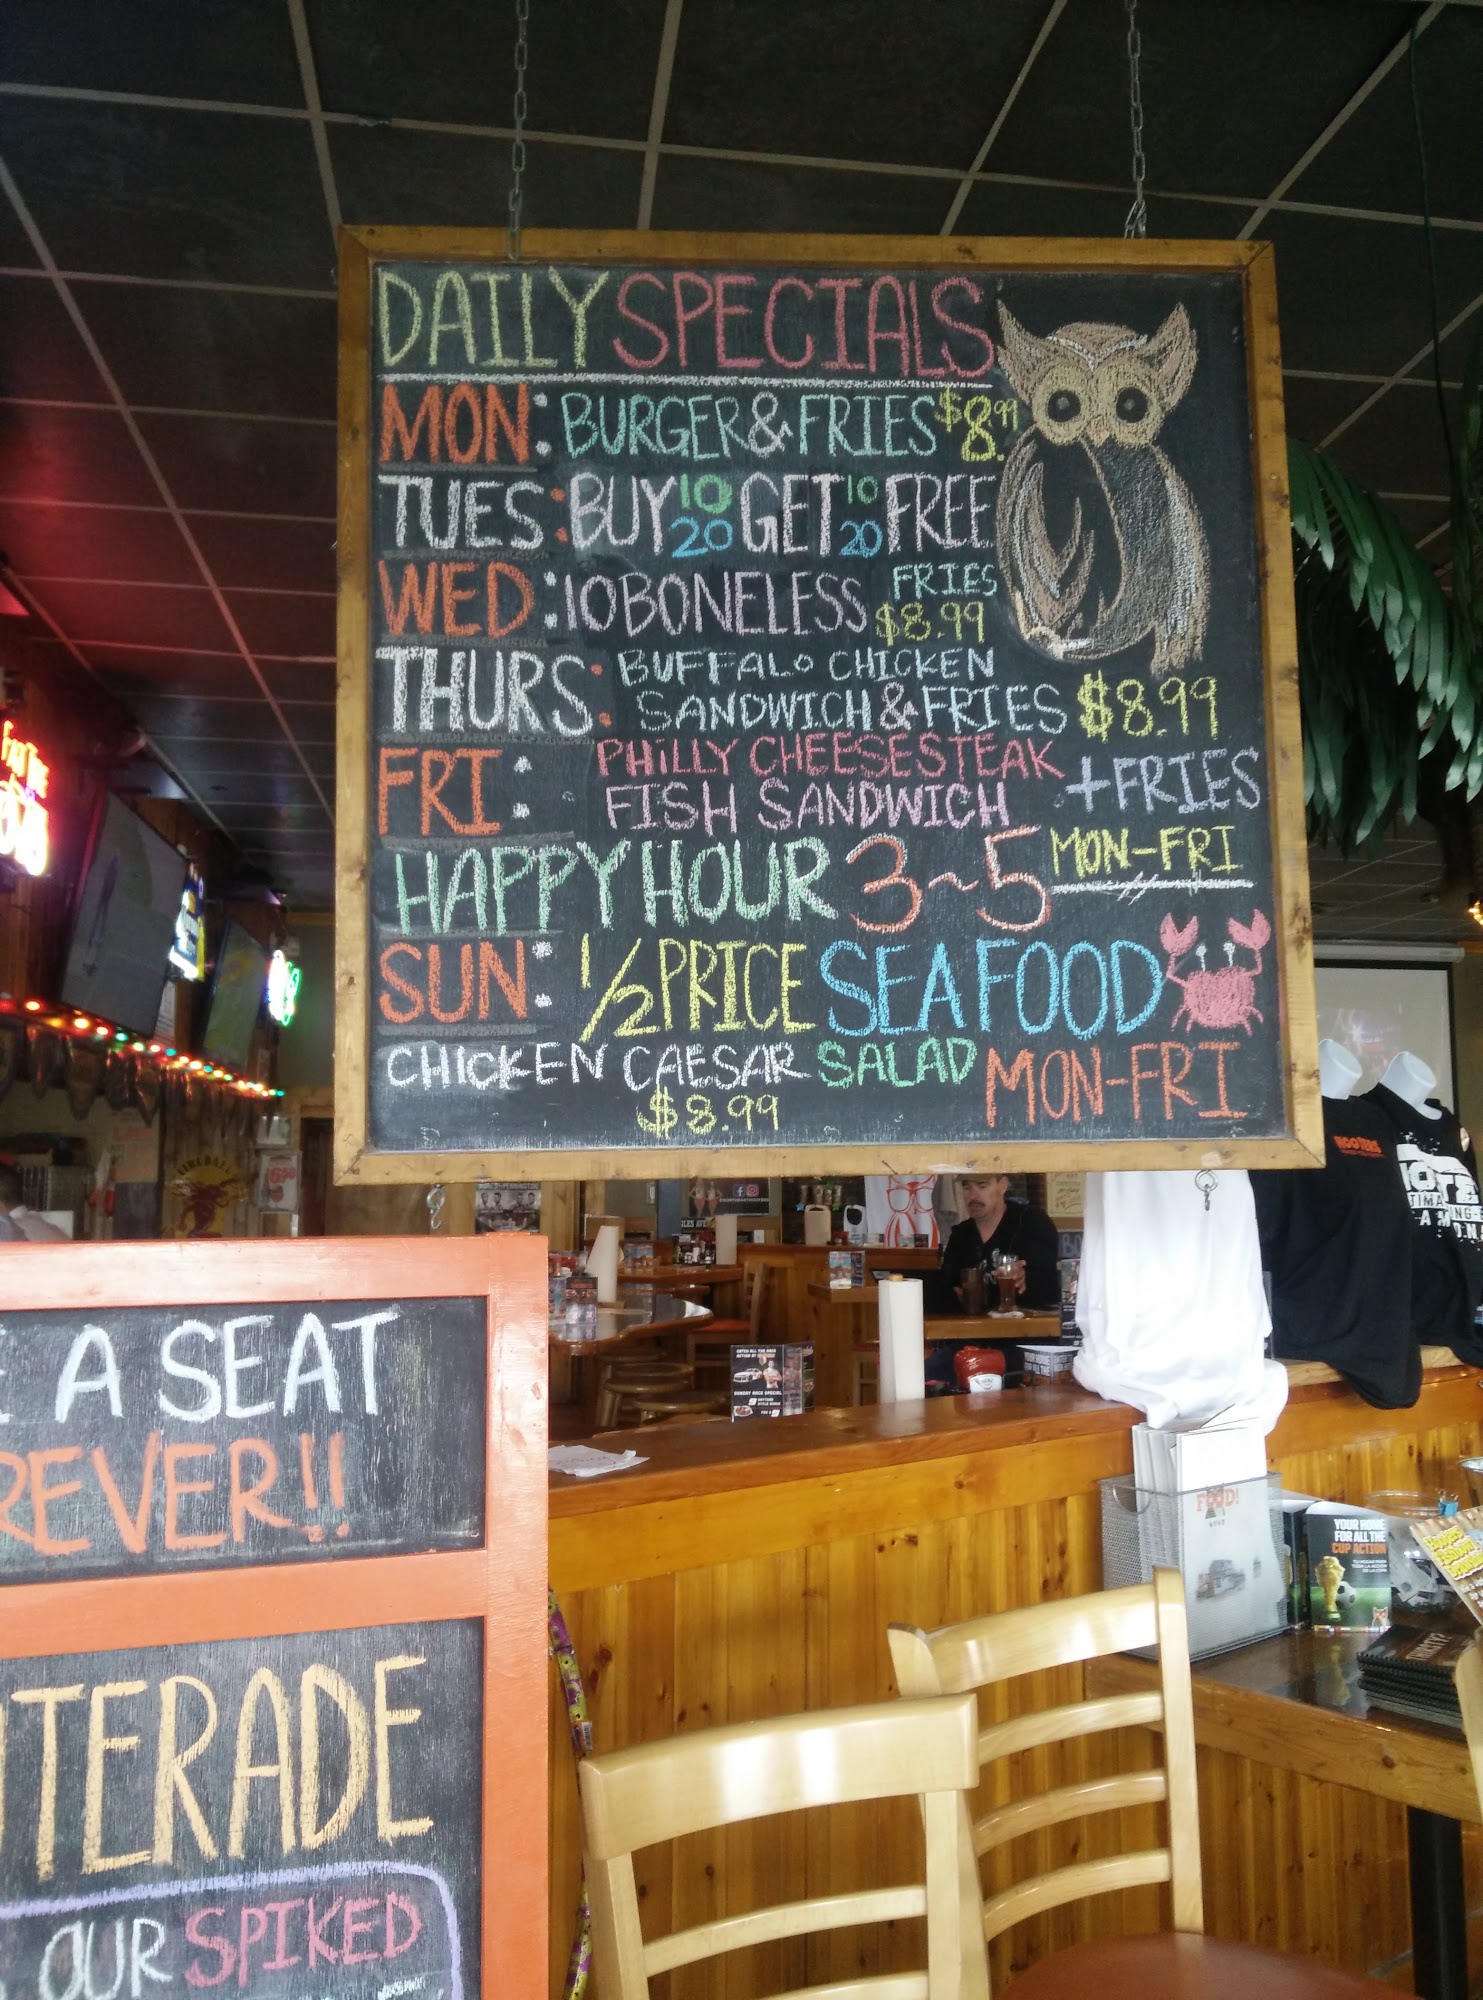 DAILY SPECIALS
MON: BURGER & FRIES $8.99
TUES: BUY 10 20 GET 10 20 FREE
WED: 10 BONELESS FRIES $8.99
THURS: BUFFALO CHICKEN
SANDWICH & FRIES $8.99
FRI: PHILLY CHEESESTEAK
FISH SANDWICH + FRIES
HAPPY HOUR 3~5 MON-FRI
SUN: 1/2 PRICE SEAFOOD
CHICKEN CAESAR SALAD MON-FRI
$8.99
A SEAT
REVER!!
TERADE
OUR SPIKED
HOOTERS
FOOD!
YOUR HOME
FOR ALL THE
CUP ACTION
CATCH ALL THE RACE
SUNDAY RACE SPECIAL